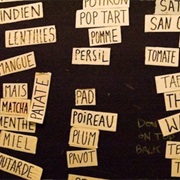 INDIEN
LENTILLES
MANGUE
MAIS
MATCHA
MENTHE
MIEL
OUTARDE
PATATE
POTIRON
POP TART
POMME
PERSIL
PAD
POIREAU
PLUM
PAVOT
SAN
TOMATE
BACK